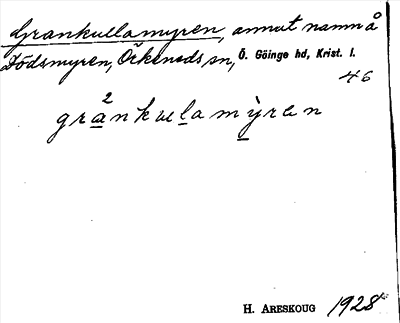 Grankullamyren, annat namn å
Dödsmyren, Örkeneds sn, Ö. Göinge hd, Krist. l.
46
2
grankulamỳren
H. ARESKOUG 1928